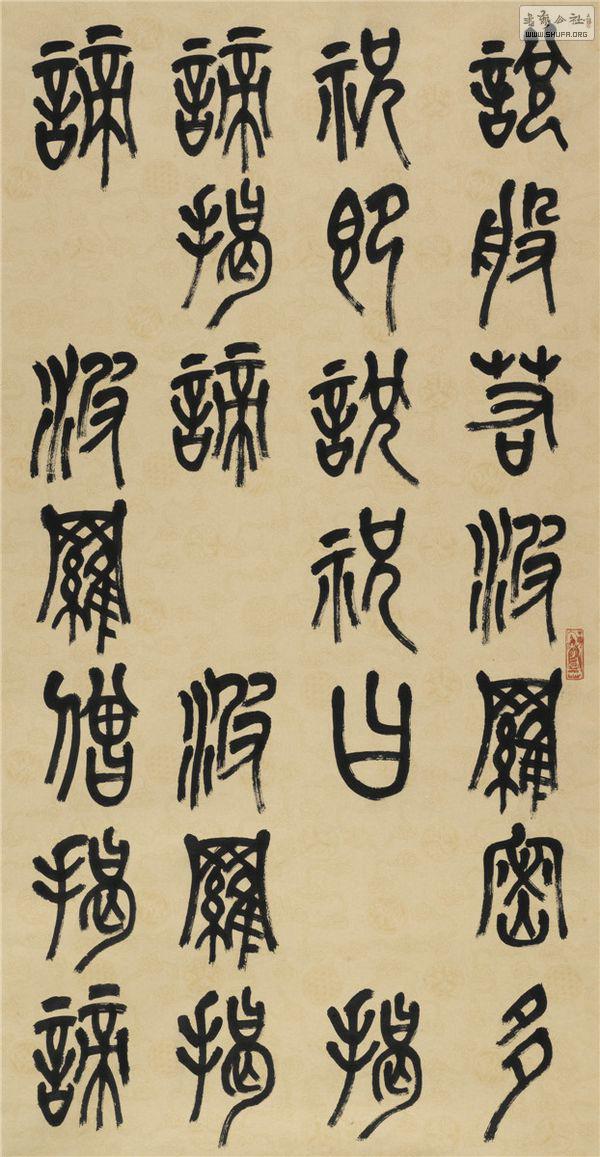 說般若波羅密多
祝即說祝曰 揭
諦揭諦 波羅揭
諦 波羅僧揭諦
WWW.SHUFA.ORG